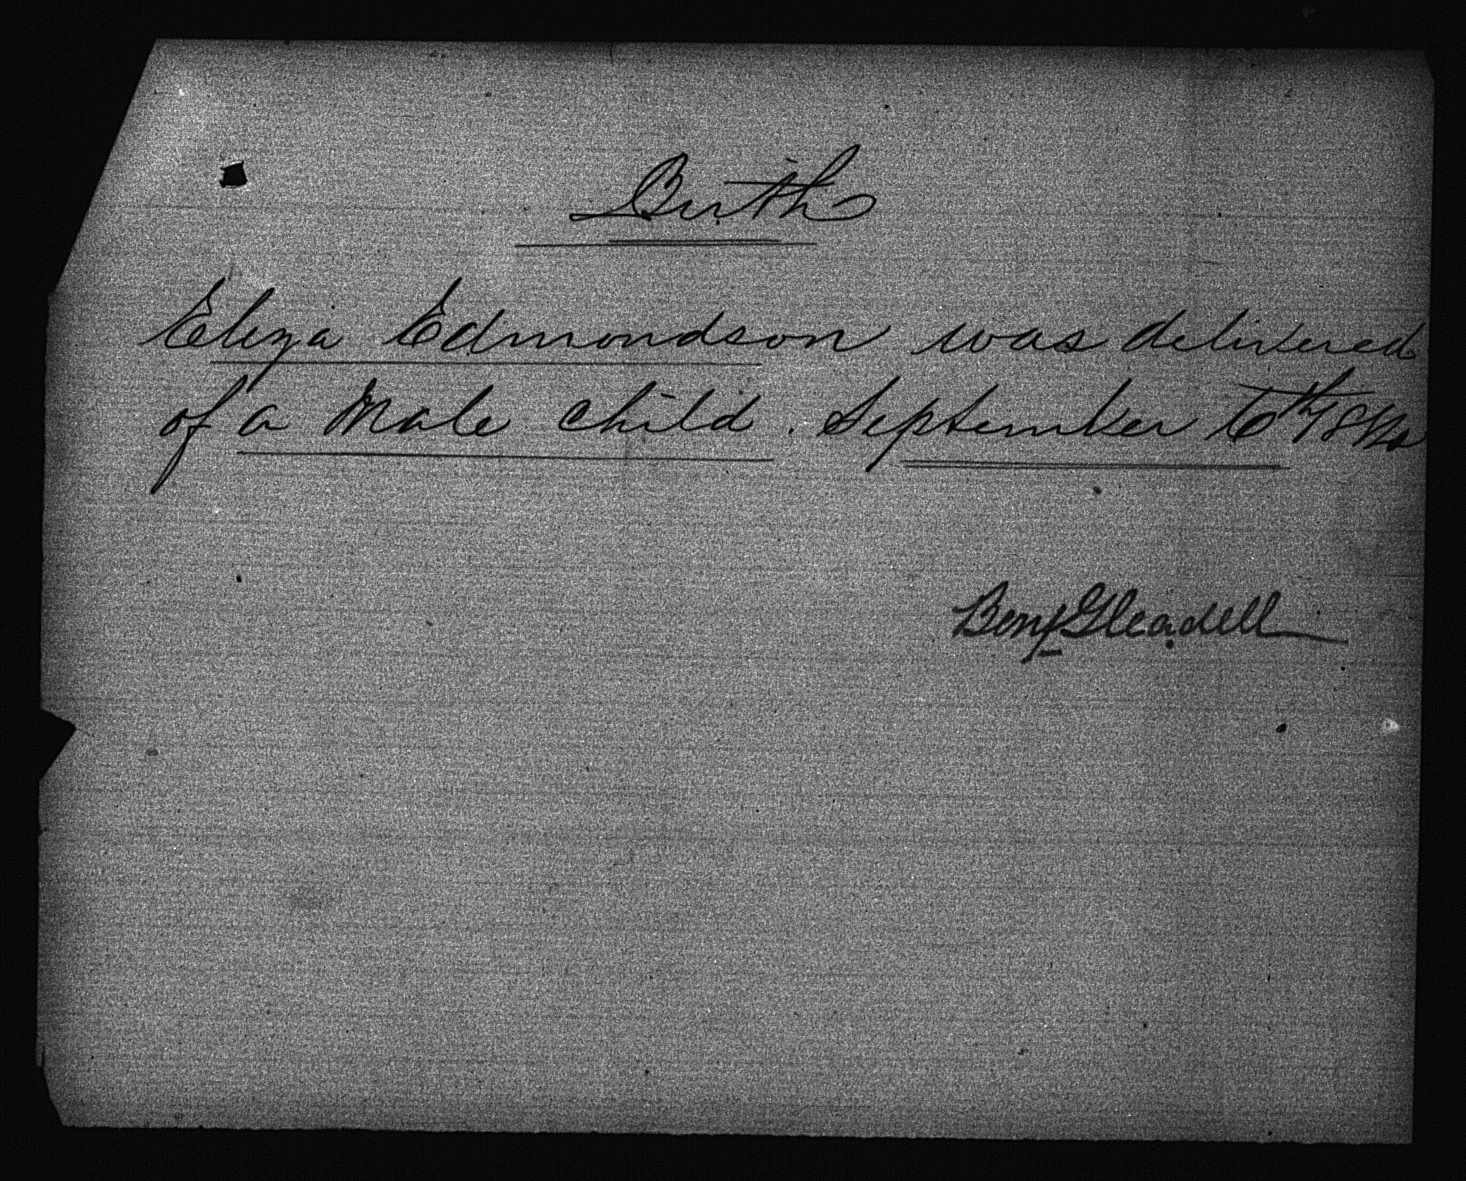 Birth
Eliza Edmondson was delivered
of a Male child. September 6th
Benj Gleadell